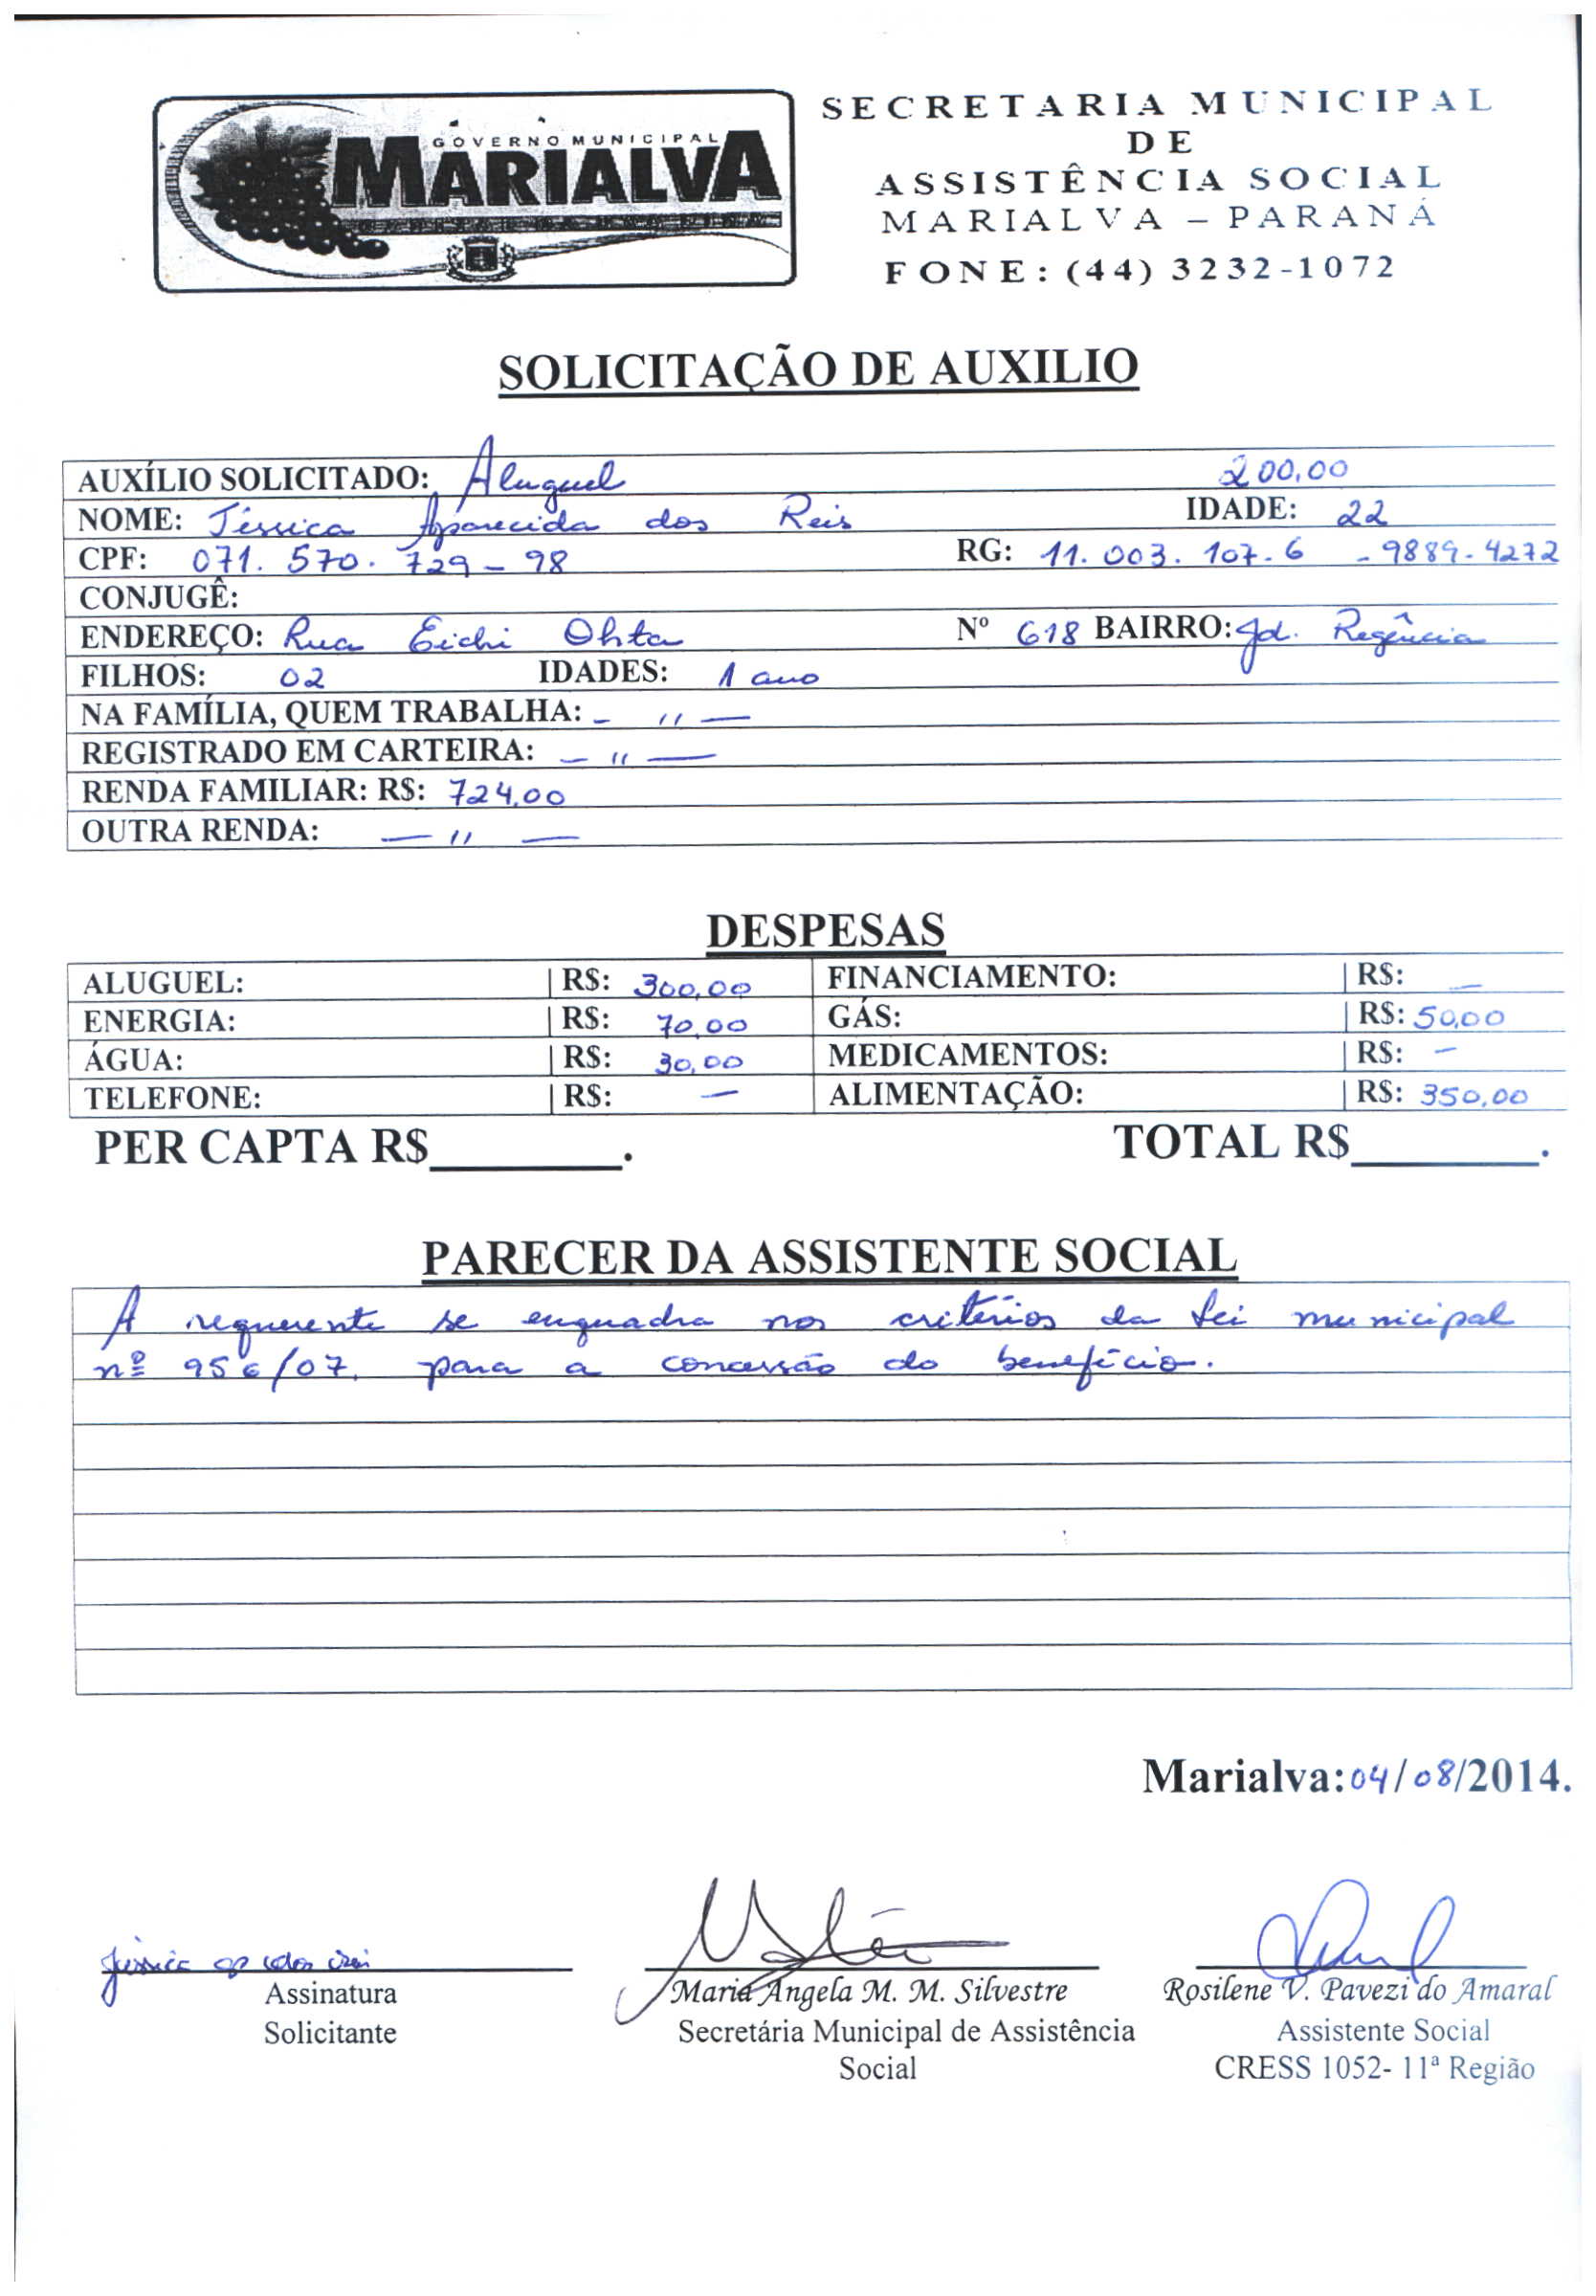 GOVERNO MUNICIPAL
MARIALVA
SECRETARIA MUNICIPAL
DE
ASSISTÊNCIA SOCIAL
MARIALVA – PARANÁ
FONE: (44) 3232-1072
SOLICITAÇÃO DE AUXILIO
AUXÍLIO SOLICITADO: Aluguel 200,00
NOME: Jéssica Aparecida dos Reis IDADE: 22
CPF: 071.570.729-98 RG: 11.003.107-6 - 9889-4272
CONJUGÊ:
ENDEREÇO: Rua Eichi Ohta Nº 618 BAIRRO: Jd. Regência
FILHOS: 02 IDADES: 1 ano
NA FAMÍLIA, QUEM TRABALHA: - " -
REGISTRADO EM CARTEIRA: - " -
RENDA FAMILIAR: R$: 724,00
OUTRA RENDA: - " -
DESPESAS
ALUGUEL: R$: 300,00 FINANCIAMENTO: R$: -
ENERGIA: R$: 70,00 GÁS: R$: 50,00
ÁGUA: R$: 30,00 MEDICAMENTOS: R$: -
TELEFONE: R$: - ALIMENTAÇÃO: R$: 350,00
PER CAPTA R$________. TOTAL R$________.
PARECER DA ASSISTENTE SOCIAL
A requerente se enquadra nos critérios da Lei municipal
nº 956/07, para a concessão do benefício.
Marialva: 04/08/2014.
Jéssica ap dos reis
Assinatura Maria Angela M. M. Silvestre Rosilene V. Pavezi do Amaral
Solicitante Secretária Municipal de Assistência Assistente Social
Social CRESS 1052- 11ª Região